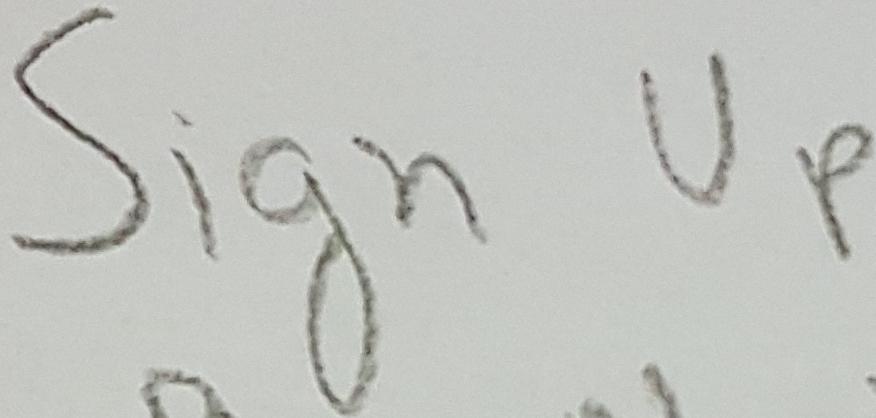 Sign Up